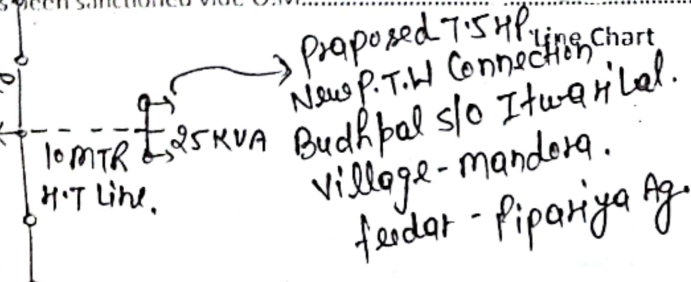 been sanctioned vide O.M.
Line Chart
Proposed 7.5 HP
New P.T.W Connection
Budhpal s/o Itwarilal.
Village - mandora.
feedar - Pipariya Ag.
25 KVA
10 MTR
H.T Line.